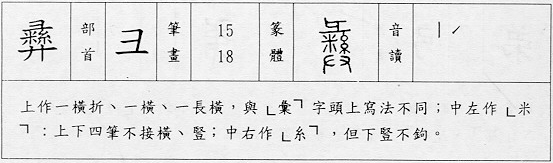 彝 部首 彐 筆畫 15 18 篆體 彝 音讀 ㄧˊ
上作一橫折、一橫、一長橫，與「彙」字頭上寫法不同；中左作「米
」：上下四筆不接橫、豎；中右作「糸」，但下豎不鉤。